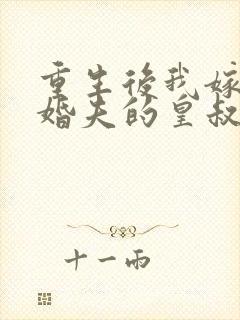 重生後我嫁
婚夫的皇叔
十一雨